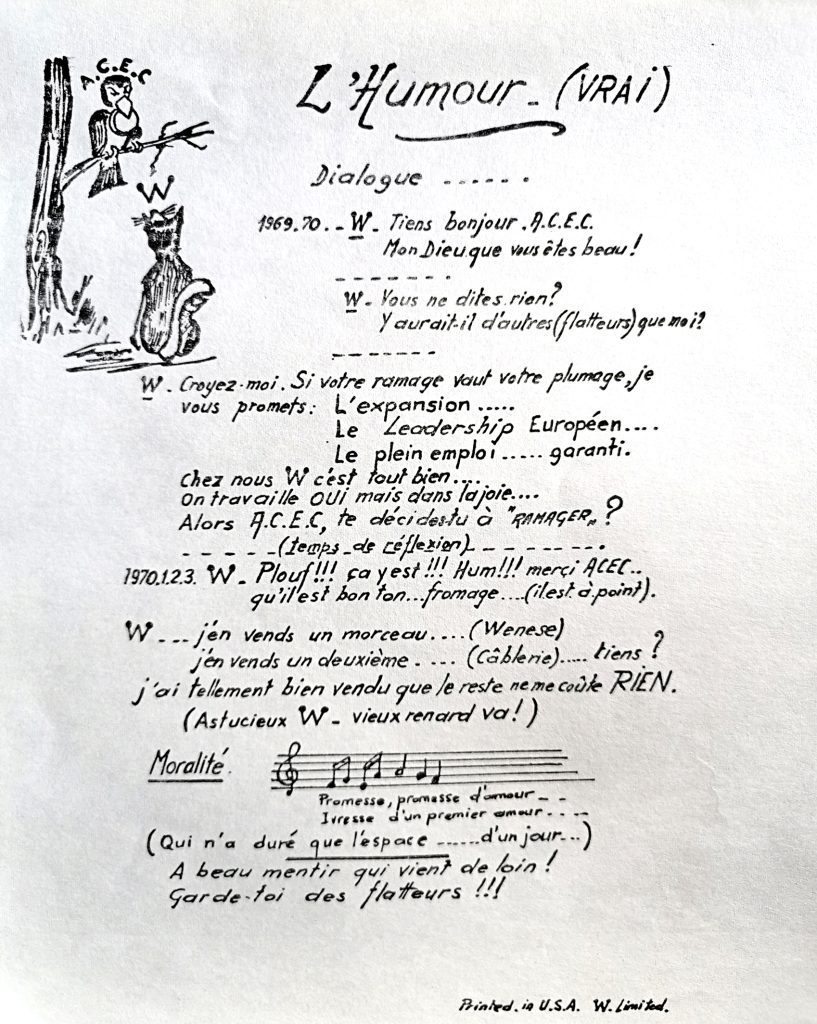 A.C.E.C
W
L'Humour - (VRAI)
Dialogue ......
1969.70.. W. Tiens bonjour. A.C.E.C.
Mon Dieu.que vous êtes beau!
--------.
W. Vous ne dites.rien?
Y aurait-il d'autres(flatteurs)que moi?
--------
W. Croyez-moi. Si votre ramage vaut votre plumage,je
vous promets: L'expansion .....
Le Leadership Européen....
Le plein emploi ..... garanti.
Chez nous W c'est tout bien....
On travaille OUI mais dans la joie....
Alors A.C.E.C, te décides-tu à "RAMAGER" ?
-----(temps de réflexion)--------.
1970.1.2.3. W. Plouf!!! ça y est!!! Hum!!! merci ACEC..
qu'il est bon ton...fromage....(il est à point).
W... j'en vends un morceau....(Wenese)
j'en vends un deuxième..... (Câblerie)..... tiens?
j'ai tellement bien vendu que le reste ne me coûte RIEN.
(Astucieux W - vieux renard va!)
Moralité.
Promesse, promesse d'amour - -
Ivresse d'un premier amour . . . .
(Qui n'a duré que l'espace ......d'un jour...)
A beau mentir qui vient de loin!
Garde-toi des flatteurs !!!
Printed.in U.S.A. W. Limited.